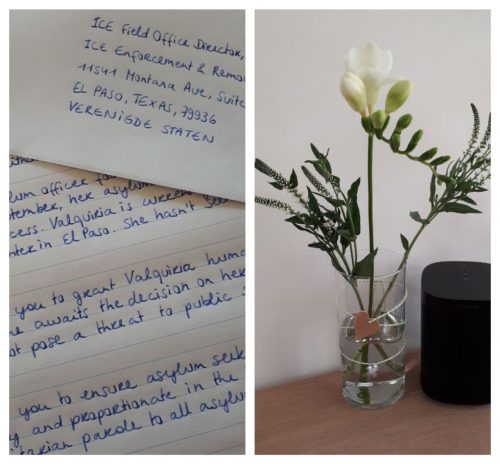 ICE Field Office Director,
ICE Enforcement & Remo
11541 Montana Ave, Suite
EL PASO, TEXAS, 79936
VERENIGDE STATEN
lum officer
tember, her asylum
cess. Valquiria is current
nter in El Paso. She hasn't see
you to grant Valquiria huma
e awaits the decision on her
ot pose a threat to public
you to ensure asylum seek
y and proportionate in the
itarian parole to all asylum
SONOS